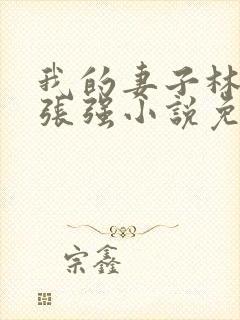 我的妻子林
張强小說免
宗鑫